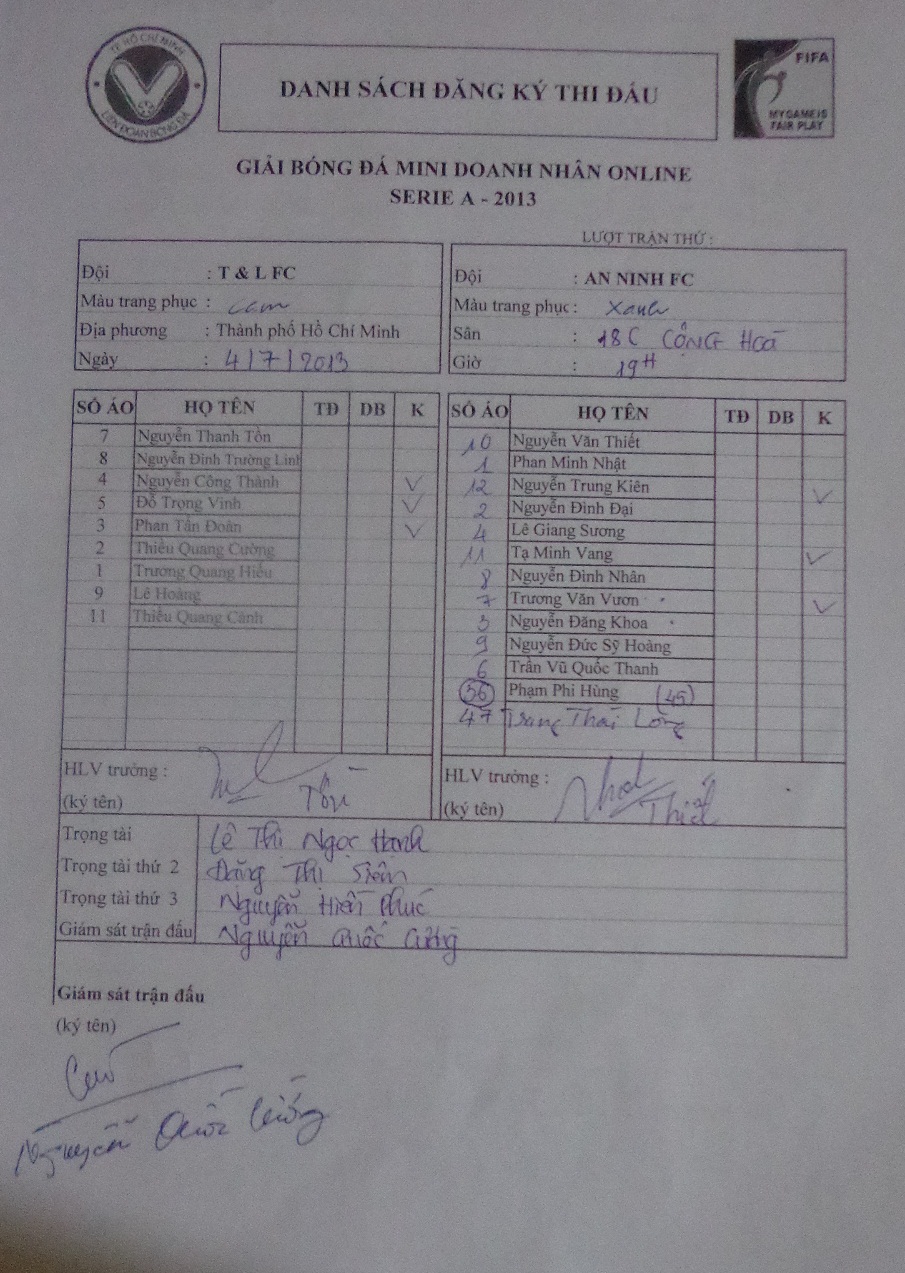 TP HỒ CHÍ MINH
LIÊN ĐOÀN BÓNG ĐÁ
DANH SÁCH ĐĂNG KÝ THI ĐẤU
FIFA
MY GAME IS
FAIR PLAY
GIẢI BÓNG ĐÁ MINI DOANH NHÂN ONLINE
SERIE A - 2013
LƯỢT TRẬN THỨ :
Đội : T & L FC
Màu trang phục : cam
Địa phương : Thành phố Hồ Chí Minh
Ngày : 4/7/2013
Đội : AN NINH FC
Màu trang phục : xanh
Sân : 18C CỘNG HOÀ
Giờ : 19H
SỐ ÁO HỌ TÊN TĐ DB K
7 Nguyễn Thanh Tồn
8 Nguyễn Đình Trường Linh
4 Nguyễn Công Thành ✓
5 Đỗ Trọng Vinh ✓
3 Phan Tấn Đoàn ✓
2 Thiều Quang Cường
1 Trương Quang Hiếu
9 Lê Hoàng
11 Thiều Quang Cảnh
SỐ ÁO HỌ TÊN TĐ DB K
10 Nguyễn Văn Thiết
1 Phan Minh Nhật
12 Nguyễn Trung Kiên ✓
2 Nguyễn Đình Đại
4 Lê Giang Sương
11 Tạ Minh Vang ✓
8 Nguyễn Đình Nhân
7 Trương Văn Vươn ✓
3 Nguyễn Đăng Khoa
9 Nguyễn Đức Sỹ Hoàng
6 Trần Vũ Quốc Thanh
36 Phạm Phi Hùng (45)
47 Thái Long
HLV trưởng :
(ký tên) Tồn
HLV trưởng :
(ký tên) Thiết
Trọng tài Lê Thị Ngọc Hạnh
Trọng tài thứ 2 Đặng Thị Siêm
Trọng tài thứ 3 Nguyễn Hiền Phúc
Giám sát trận đấu Nguyễn Quốc Cường
Giám sát trận đấu
(ký tên)
Nguyễn Quốc Cường